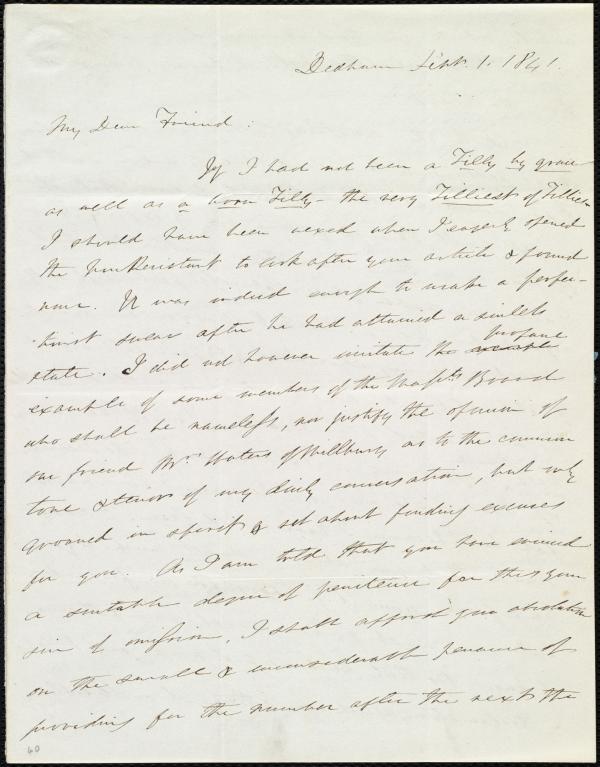 Dedham Sept. 1. 1841.
My Dear Friend:
If I had not been a Tilly by grace
as well as a born Tilly - the very Tilliest of Tillies
I should have been vexed when I eagerly opened
the Non Resistant to look after your article & found
none. It was indeed enough to make a perfec-
tionist swear after he had attained a sinless
state. I did not however imitate the profane
example of some members of the Mass: Board
who shall be nameless, nor justify the opinion of
our friend Mrs. Waters of Millbury as to the common
tone & tenor of my daily conversation, but only
groaned in spirit & set about finding excuses
for you. As I am told that you have evinced
a suitable degree of penitence for this your
sin of omission, I shall afford you absolution
on the small & inconsiderable penance of
providing for the number after the next the
40